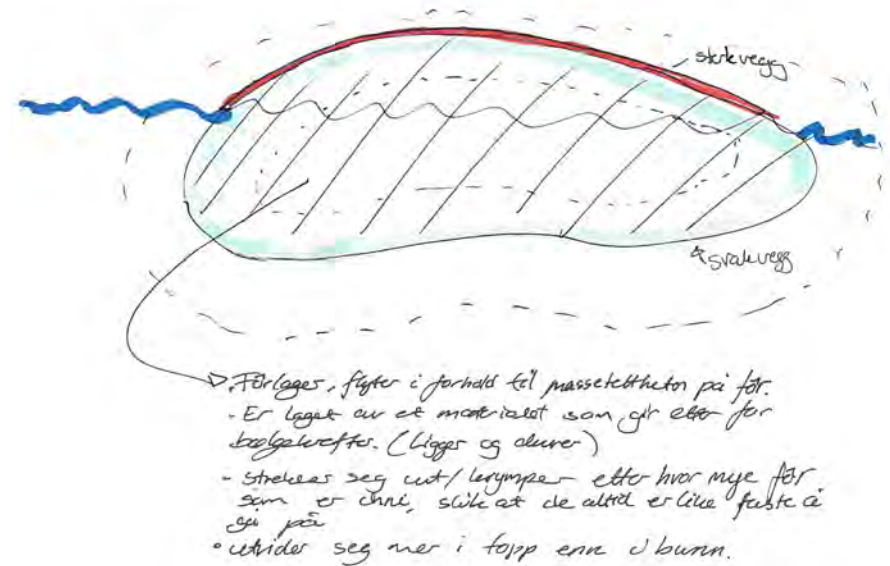 sterk vegg
svak vegg
Fôrlager, flyter i forhold til massetettheten på fôr.
- Er laget av et materialet som gir etter for
bølgekrefter. (Ligger og duver)
- strekker seg ut/krymper etter hvor mye fôr
som er inni, slik at de alltid er like faste å
gå på
• utvider seg mer i topp enn i bunn.